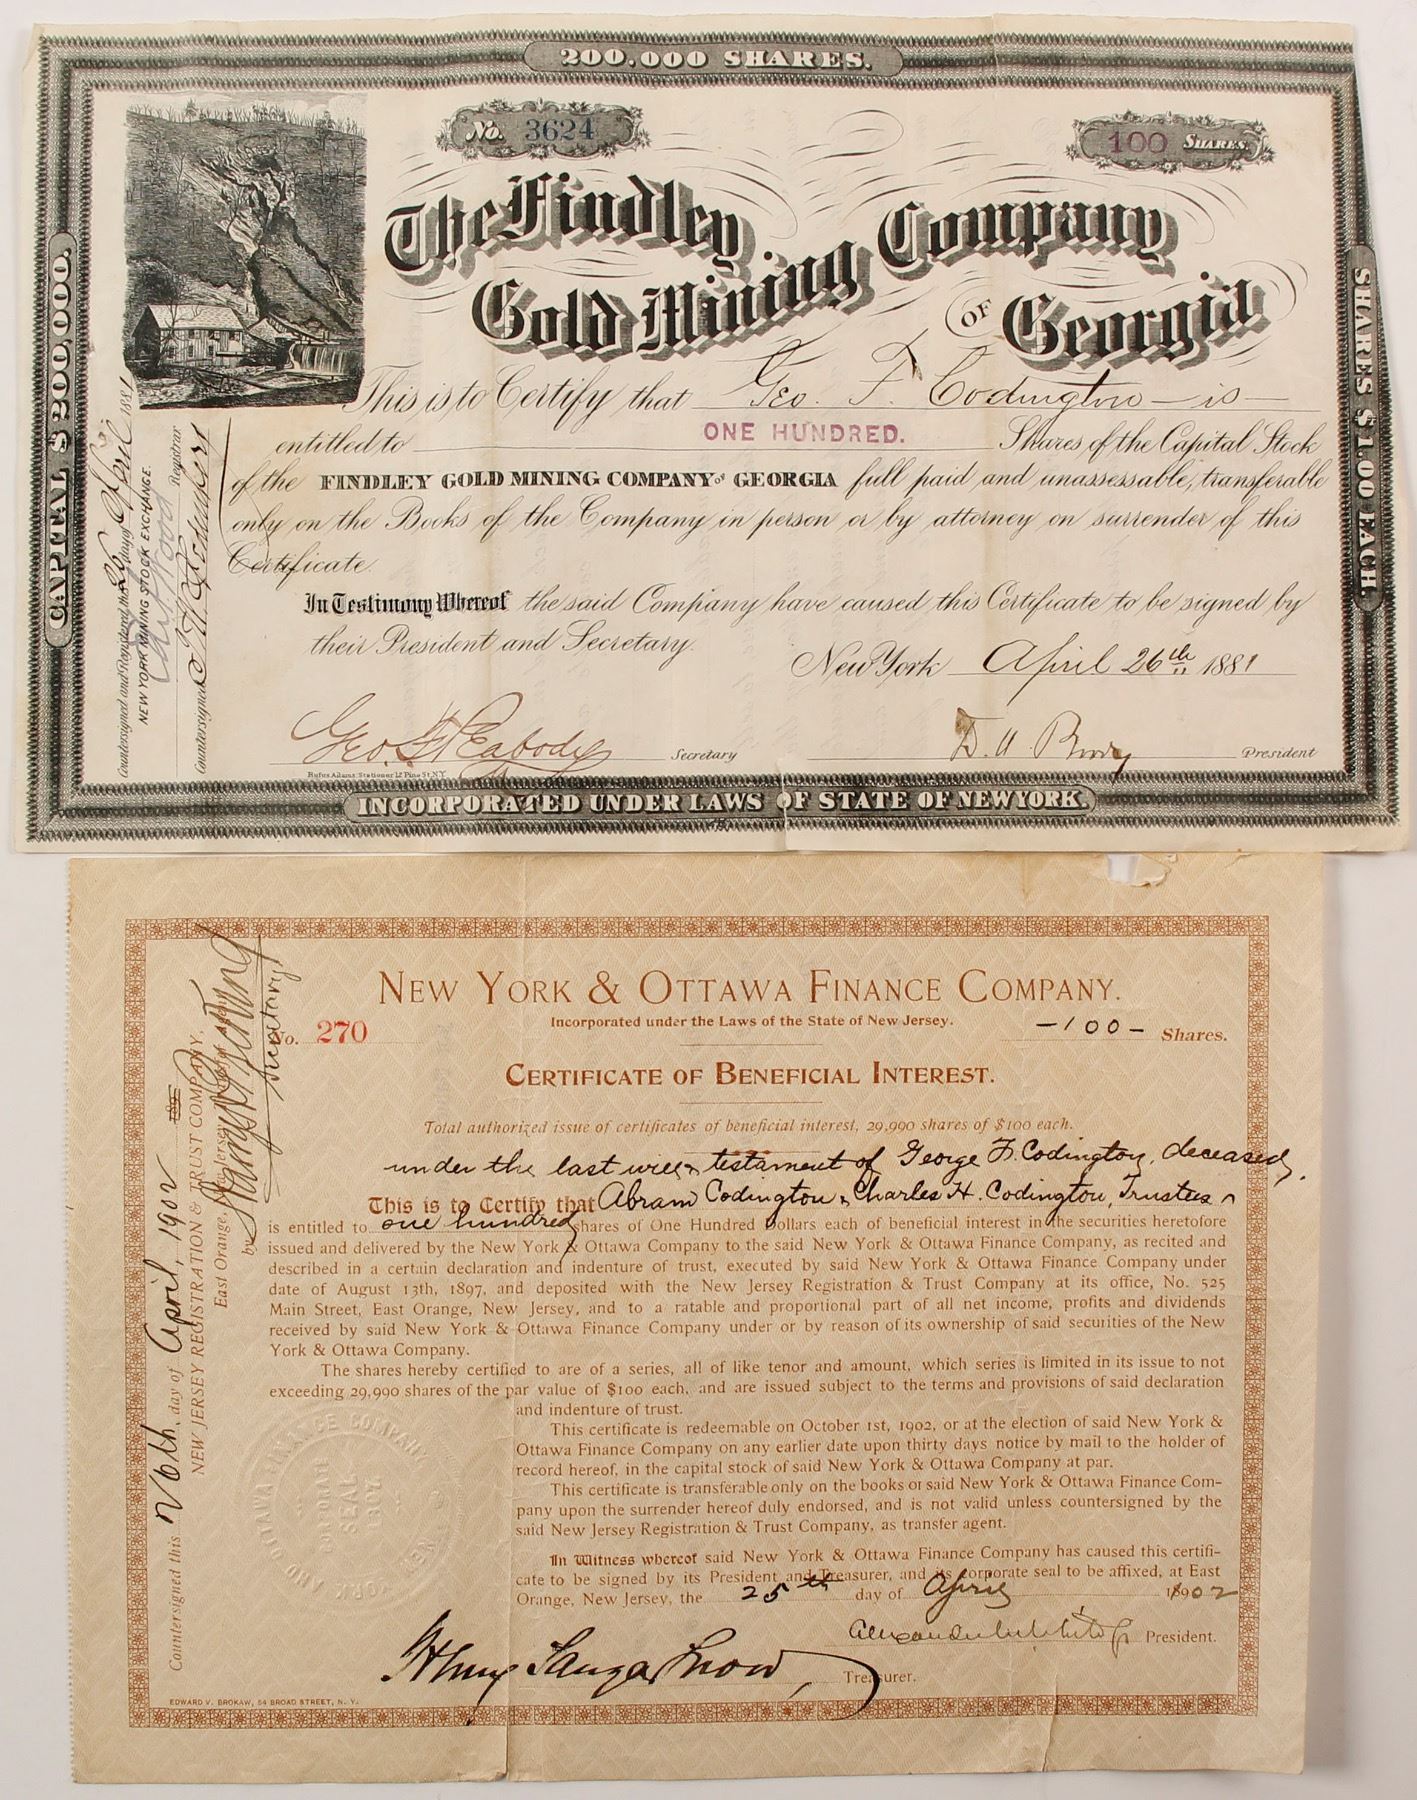 200.000 SHARES.
No. 3624
100 SHARES.
The Findley Gold Mining Company OF Georgia
CAPITAL $200,000.
SHARES $1.00 EACH.
This is to Certify that Geo. F. Codington is
entitled to ONE HUNDRED. Shares of the Capital Stock
of the FINDLEY GOLD MINING COMPANY of GEORGIA full paid and unassessable, transferable
only on the Books of the Company in person or by attorney on surrender of this
Certificate.
In Testimony Whereof the said Company have caused this Certificate to be signed by
their President and Secretary.
New York April 26th 1881
Geo. H. Peabody Secretary
President
Rufus Adams Stationer 12 Pine St. N.Y.
INCORPORATED UNDER LAWS OF STATE OF NEW YORK.
Countersigned and Registered this 26 day of April 1881
NEW YORK MINING STOCK EXCHANGE.
Countersigned Registrar
NEW YORK & OTTAWA FINANCE COMPANY.
Incorporated under the Laws of the State of New Jersey.
No. 270
-100- Shares.
CERTIFICATE OF BENEFICIAL INTEREST.
Total authorized issue of certificates of beneficial interest, 29,990 shares of $100 each.
under the last will & testament of George F. Codington, deceased.
This is to Certify that Abram Codington & Charles H. Codington, Trustees ^
is entitled to one hundred shares of One Hundred Dollars each of beneficial interest in the securities heretofore
issued and delivered by the New York & Ottawa Company to the said New York & Ottawa Finance Company, as recited and
described in a certain declaration and indenture of trust, executed by said New York & Ottawa Finance Company under
date of August 13th, 1897, and deposited with the New Jersey Registration & Trust Company at its office, No. 525
Main Street, East Orange, New Jersey, and to a ratable and proportional part of all net income, profits and dividends
received by said New York & Ottawa Finance Company under or by reason of its ownership of said securities of the New
York & Ottawa Company.
The shares hereby certified to are of a series, all of like tenor and amount, which series is limited in its issue to not
exceeding 29,990 shares of the par value of $100 each, and are issued subject to the terms and provisions of said declaration
and indenture of trust.
This certificate is redeemable on October 1st, 1902, or at the election of said New York &
Ottawa Finance Company on any earlier date upon thirty days notice by mail to the holder of
record hereof, in the capital stock of said New York & Ottawa Company at par.
This certificate is transferable only on the books of said New York & Ottawa Finance Com-
pany upon the surrender hereof duly endorsed, and is not valid unless countersigned by the
said New Jersey Registration & Trust Company, as transfer agent.
In Witness whereof said New York & Ottawa Finance Company has caused this certifi-
cate to be signed by its President and Treasurer, and its corporate seal to be affixed, at East
Orange, New Jersey, the 25th day of April 1902
President.
Treasurer.
EDWARD V. BROKAW, 54 BROAD STREET, N. Y.
Countersigned this 26th day of April, 1902
NEW JERSEY REGISTRATION & TRUST COMPANY,
East Orange, New Jersey
by Secretary
NEW YORK AND OTTAWA FINANCE COMPANY
CORPORATE
SEAL
1897